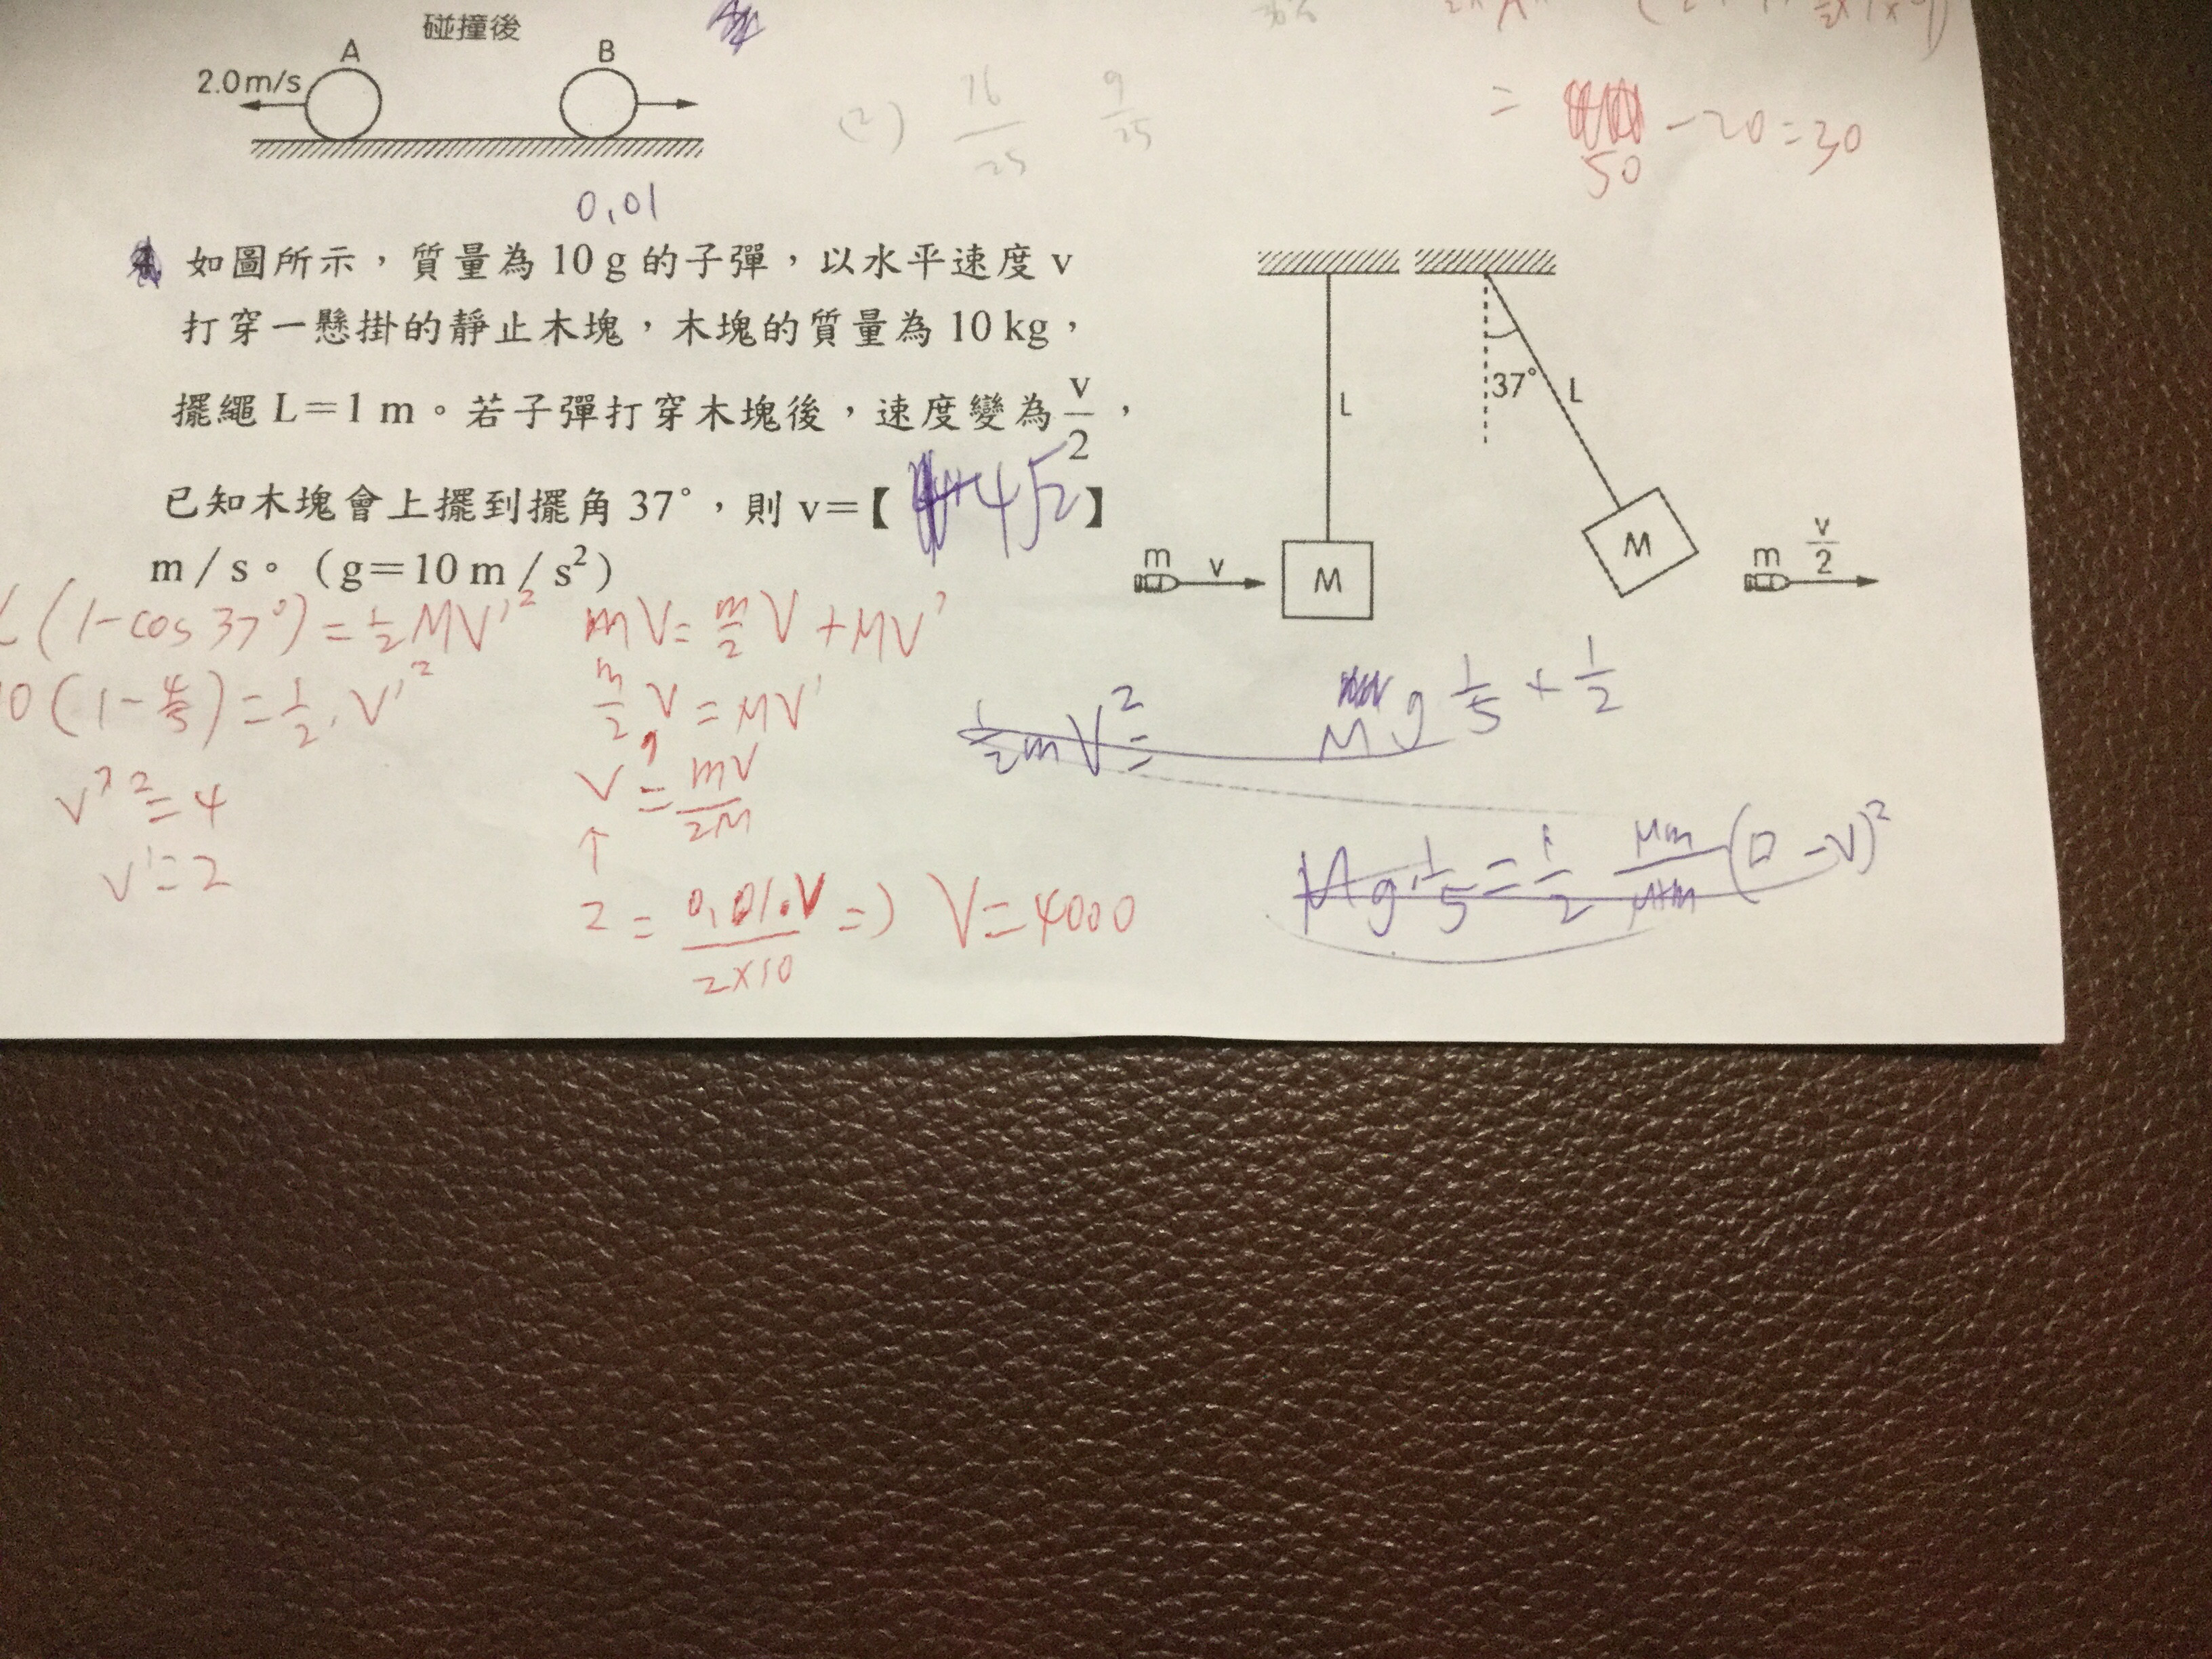 碰撞後
A
B
2.0m/s
(2) 16/25 9/25
= 50 -20=30
0.01
如圖所示，質量為 10 g 的子彈，以水平速度 v
打穿一懸掛的靜止木塊，木塊的質量為 10 kg，
擺繩 L＝1 m。若子彈打穿木塊後，速度變為 v/2，
已知木塊會上擺到擺角 37°，則 v＝【 4√2 】
m／s。（g＝10 m／s²）
L
37°
L
m
v
M
M
m
v/2
L(1-cos37°)=1/2MV'²
0(1-4/5)=1/2.V'²
V'²=4
V'=2
mV=m/2V+MV'
m/2V=MV'
V'=mV/2M
↑
2=0.01.V/2×10 => V=4000
1/2mV²= Mg1/5+1/2
Mg.1/5=1/2 Mm/M+m(0-V)²